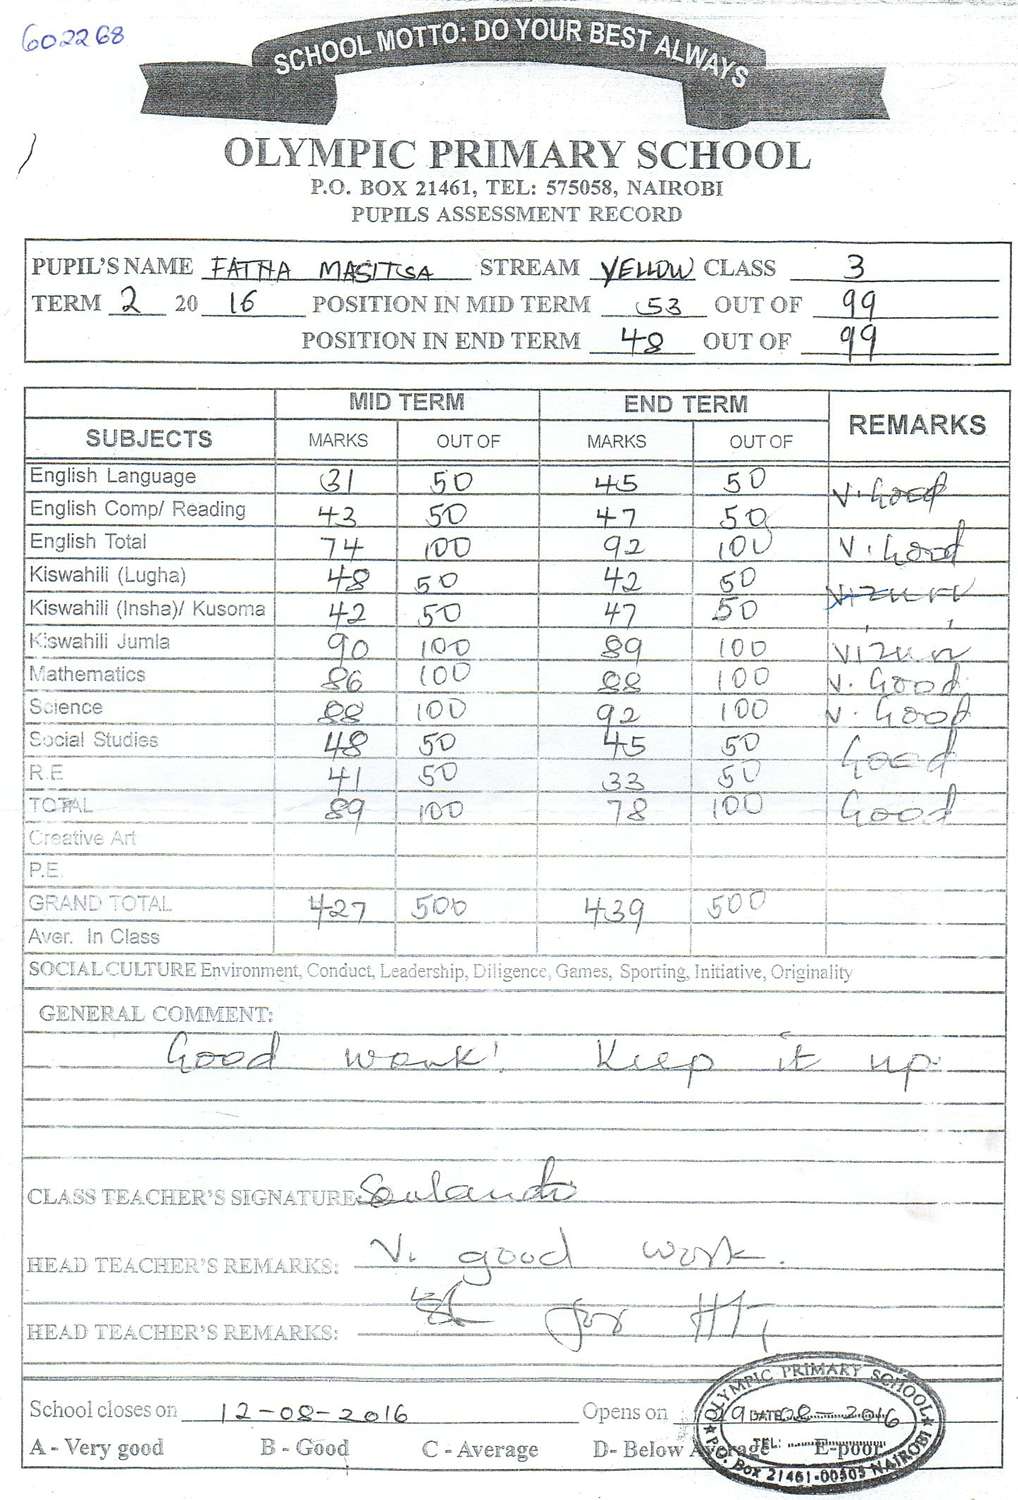 602268
SCHOOL MOTTO: DO YOUR BEST ALWAYS
OLYMPIC PRIMARY SCHOOL
P.O. BOX 21461, TEL: 575058, NAIROBI
PUPILS ASSESSMENT RECORD
PUPIL'S NAME FATHA MASITSA STREAM YELLOW CLASS 3
TERM 2 2016 POSITION IN MID TERM 53 OUT OF 99
POSITION IN END TERM 48 OUT OF 99
MID TERM END TERM REMARKS
SUBJECTS MARKS OUT OF MARKS OUT OF
English Language 31 50 45 50 V. Good
English Comp/ Reading 43 50 47 50
English Total 74 100 92 100 V. Good
Kiswahili (Lugha) 48 50 42 50 Vizuri
Kiswahili (Insha)/ Kusoma 42 50 47 50
Kiswahili Jumla 90 100 89 100 Vizuri
Mathematics 86 100 88 100 V. Good
Science 88 100 92 100 V. Good
Social Studies 48 50 45 50 Good
R.E 41 50 33 50
TOTAL 89 100 78 100 Good
Creative Art
P.E.
GRAND TOTAL 427 500 439 500
Aver. In Class
SOCIAL CULTURE Environment, Conduct, Leadership, Diligence, Games, Sporting, Initiative, Originality
GENERAL COMMENT:
Good work! Keep it up.
CLASS TEACHER'S SIGNATURE:
HEAD TEACHER'S REMARKS: V. good work.
HEAD TEACHER'S REMARKS: for H/T,
School closes on 12-08-2016 Opens on 29-08-2016
A - Very good B - Good C - Average D- Below Average E-poor
OLYMPIC PRIMARY SCHOOL
DATE:
TEL:
P.O. Box 21461-00505 NAIROBI